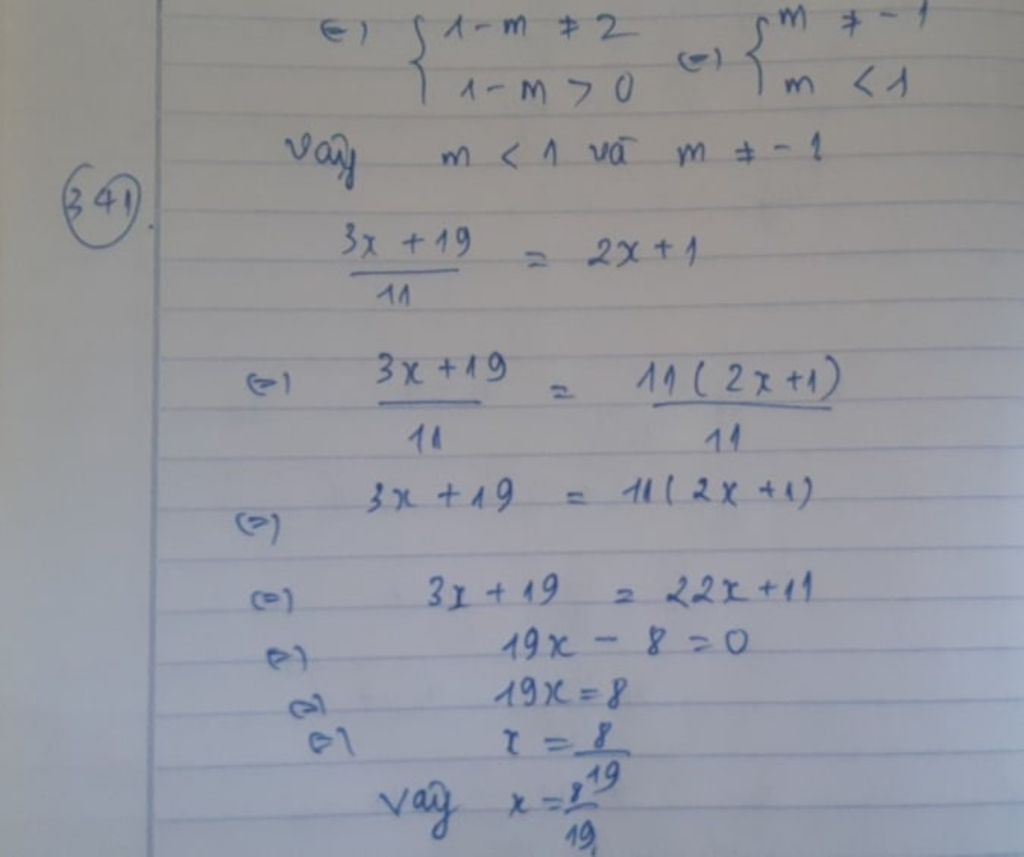 ⇔ { 1-m ≠ 2 ⇔ { m ≠ -1
1-m > 0 m < 1
Vậy m < 1 và m ≠ -1
341.
(3x + 19)/11 = 2x + 1
⇔ (3x + 19)/11 = 11(2x + 1)/11
⇔ 3x + 19 = 11(2x + 1)
⇔ 3x + 19 = 22x + 11
⇔ 19x - 8 = 0
⇔ 19x = 8
⇔ x = 8/19
Vậy x = 8/19